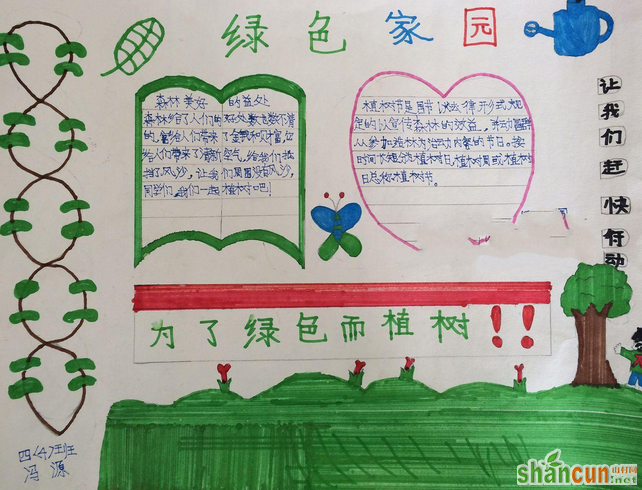 绿色家园
森林美好 的益处
森林给了人们的好处数也数不清
的,它给人们带来了金钱和财富,它
给人们带来了清新空气,给我们抵
挡了风沙,让我们周围没有风沙,
同学们,我们一起植树吧!
植树节是国节以法律形式规
定的以宣传森林的效益,并动
从参加造林为活动内容的节日。按
时间长短分为植树日,植树周或植树
日总称植树节。
让我们赶快行动
为了绿色而植树!!
四〈4〉班
冯源
shancun
山村网
.net